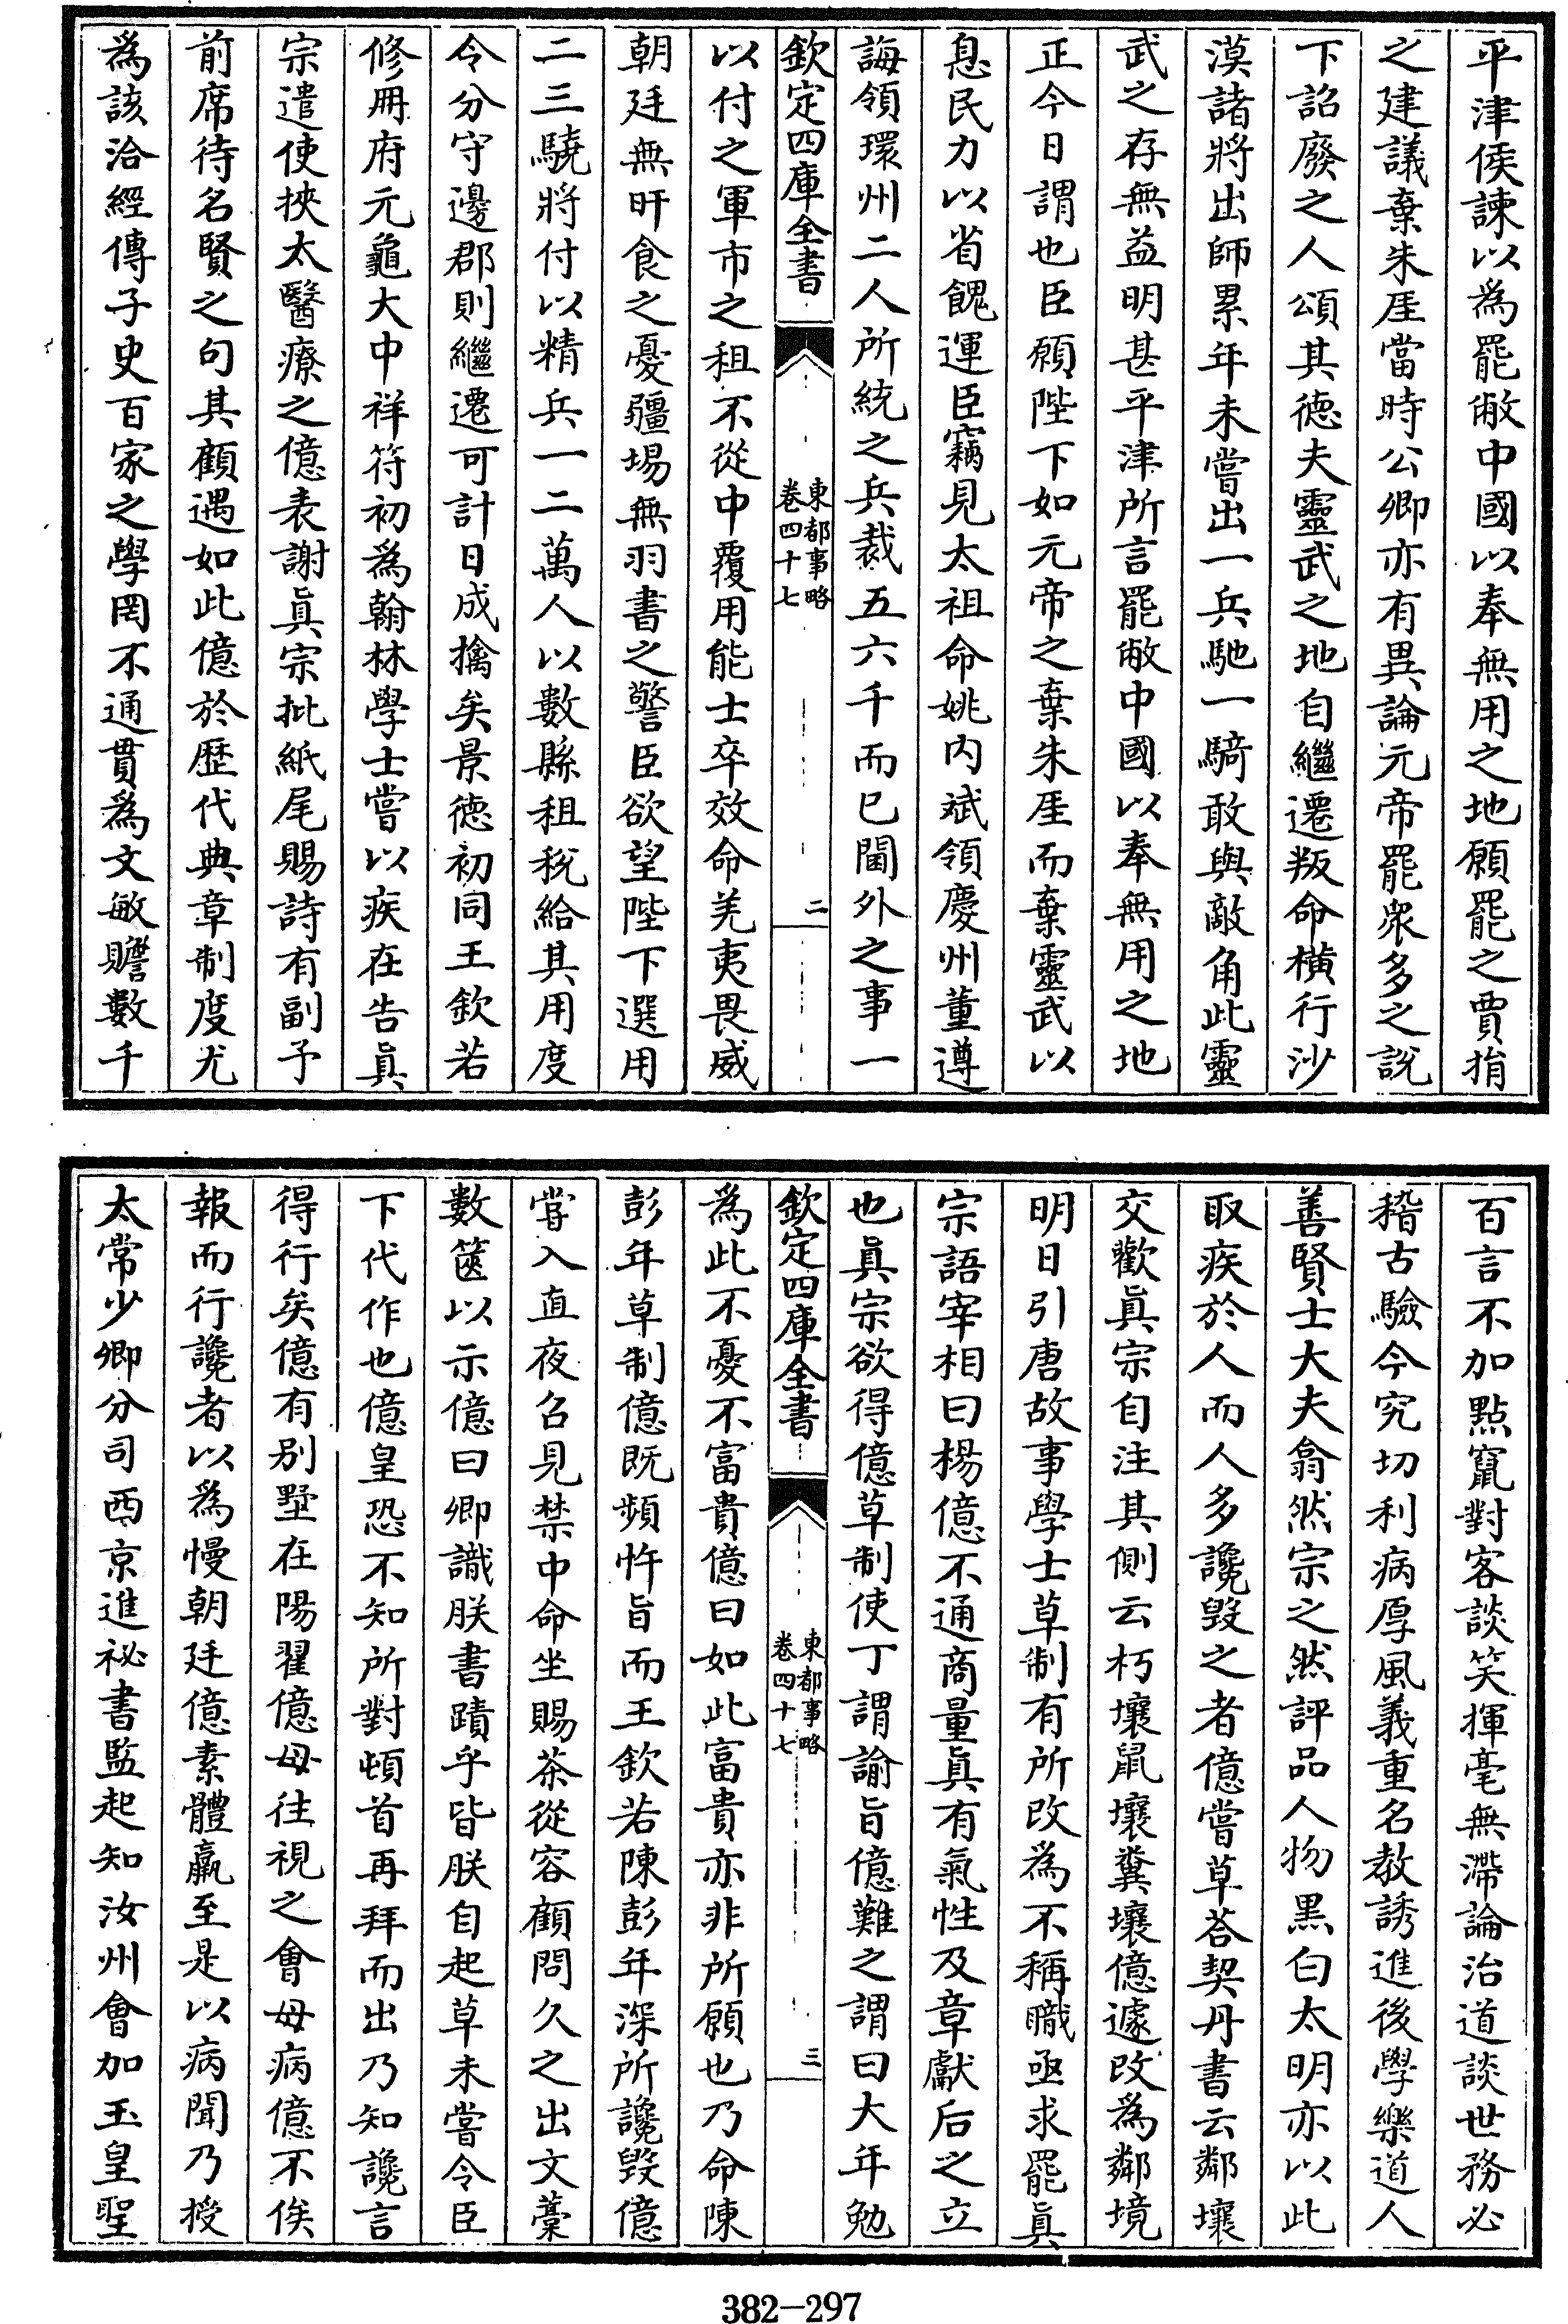 平津侯諫以為罷敝中國以奉無用之地願罷之賈捐
之建議棄朱厓當時公卿亦有異論元帝罷衆多之說
下詔廢之人頌其德夫靈武之地自繼遷叛命橫行沙
漠諸將出師累年未嘗出一兵馳一騎敢與敵角此靈
武之存無益明甚平津所言罷敝中國以奉無用之地
正今日謂也臣願陛下如元帝之棄朱厓而棄靈武以
息民力以省餽運臣竊見太祖命姚内斌領慶州董遵
誨領環州二人所統之兵裁五六千而已閫外之事一
欽定四庫全書
東都事略
卷四十七
二
以付之軍市之租不從中覆用能士卒效命羌夷畏威
朝廷無旰食之憂疆場無羽書之警臣欲望陛下選用
二三驍將付以精兵一二萬人以數縣租稅給其用度
令分守邊郡則繼遷可計日成擒矣景德初同王欽若
修冊府元龜大中祥符初為翰林學士嘗以疾在告真
宗遣使挾太醫療之億表謝真宗批紙尾賜詩有副予
前席待名賢之句其顧遇如此億於歷代典章制度尤
為該洽經傳子史百家之學罔不通貫為文敏贍數千
百言不加點竄對客談笑揮毫無滯論治道談世務必
稽古驗今究切利病厚風義重名教誘進後學樂道人
善賢士大夫翕然宗之然評品人物黑白太明亦以此
取疾於人而人多讒毀之者億嘗草荅契丹書云鄰壤
交歡真宗自注其側云朽壤鼠壤糞壤億遽改為鄰境
明日引唐故事學士草制有所改為不稱職亟求罷真
宗語宰相曰楊億不通商量真有氣性及章獻后之立
也真宗欲得億草制使丁謂諭旨億難之謂曰大年勉
欽定四庫全書
東都事略
卷四十七
三
為此不憂不富貴億曰如此富貴亦非所願也乃命陳
彭年草制億既頻忤旨而王欽若陳彭年深所讒毀億
嘗入直夜召見禁中命坐賜茶從容顧問久之出文藁
數篋以示億曰卿識朕書蹟乎皆朕自起草未嘗令臣
下代作也億皇恐不知所對頓首再拜而出乃知讒言
得行矣億有别墅在陽翟億母往視之會母病億不俟
報而行讒者以為慢朝廷億素體羸至是以病聞乃授
太常少卿分司西京進祕書監起知汝州會加玉皇聖
382-297